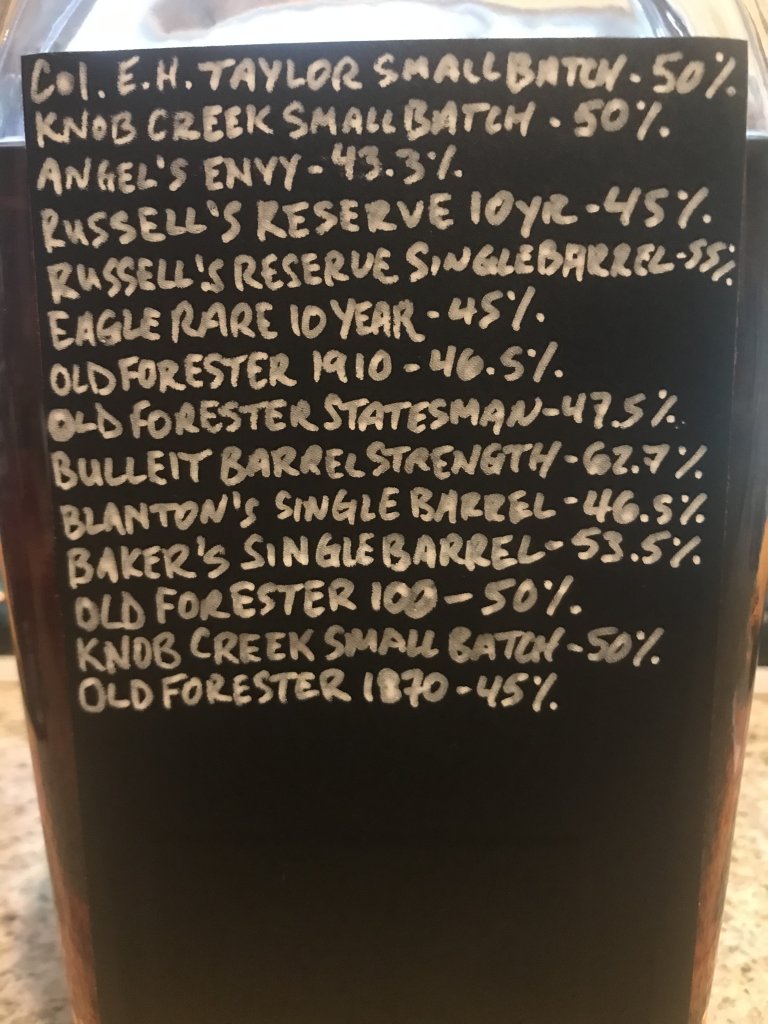 Col. E.H. TAYLOR SMALL BATCH - 50%
KNOB CREEK SMALL BATCH - 50%
ANGEL'S ENVY - 43.3%
RUSSELL'S RESERVE 10YR - 45%
RUSSELL'S RESERVE SINGLE BARREL - 55%
EAGLE RARE 10 YEAR - 45%
OLD FORESTER 1910 - 46.5%
OLD FORESTER STATESMAN - 47.5%
BULLEIT BARREL STRENGTH - 62.7%
BLANTON'S SINGLE BARREL - 46.5%
BAKER'S SINGLE BARREL - 53.5%
OLD FORESTER 100 - 50%
KNOB CREEK SMALL BATCH - 50%
OLD FORESTER 1870 - 45%